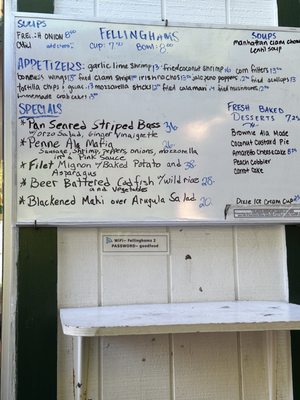 SOUPS
FRENCH ONION 8.00
Chili
FELLINGHAMS
CUP: 7.00 BOWL: 8.00
SOUPS
Manhattan Clam Chowder
Lentil Soup
APPETIZERS: garlic lime shrimp fried coconut shrimp corn fritters
boneless wings fried clam strips irish nachos jalapeno poppers fried scallops
tortilla chips & guac mozzarella sticks fried calamari mini tuna
homemade crab cakes
SPECIALS
* Pan Seared Striped Bass 36
w/ orzo Salad, Ginger Vinaigrette
* Penne Ala Mafia 26
Sausage, shrimp, peppers, onions, mozzarella
in a Pink Sauce
* Filet Mignon w/ Baked Potato and 38
Asparagus
* Beer Battered Codfish w/ wild rice 28
and Vegetables
* Blackened Maki over Arugula Salad 20
FRESH BAKED
DESSERTS 7.25
Brownie Ala Mode
Coconut Custard Pie
Amaretto Cheesecake
Peach Cobbler
Carrot Cake
DIXIE ICE CREAM CUP
WiFi- Fellinghams 2
PASSWORD- goodfood